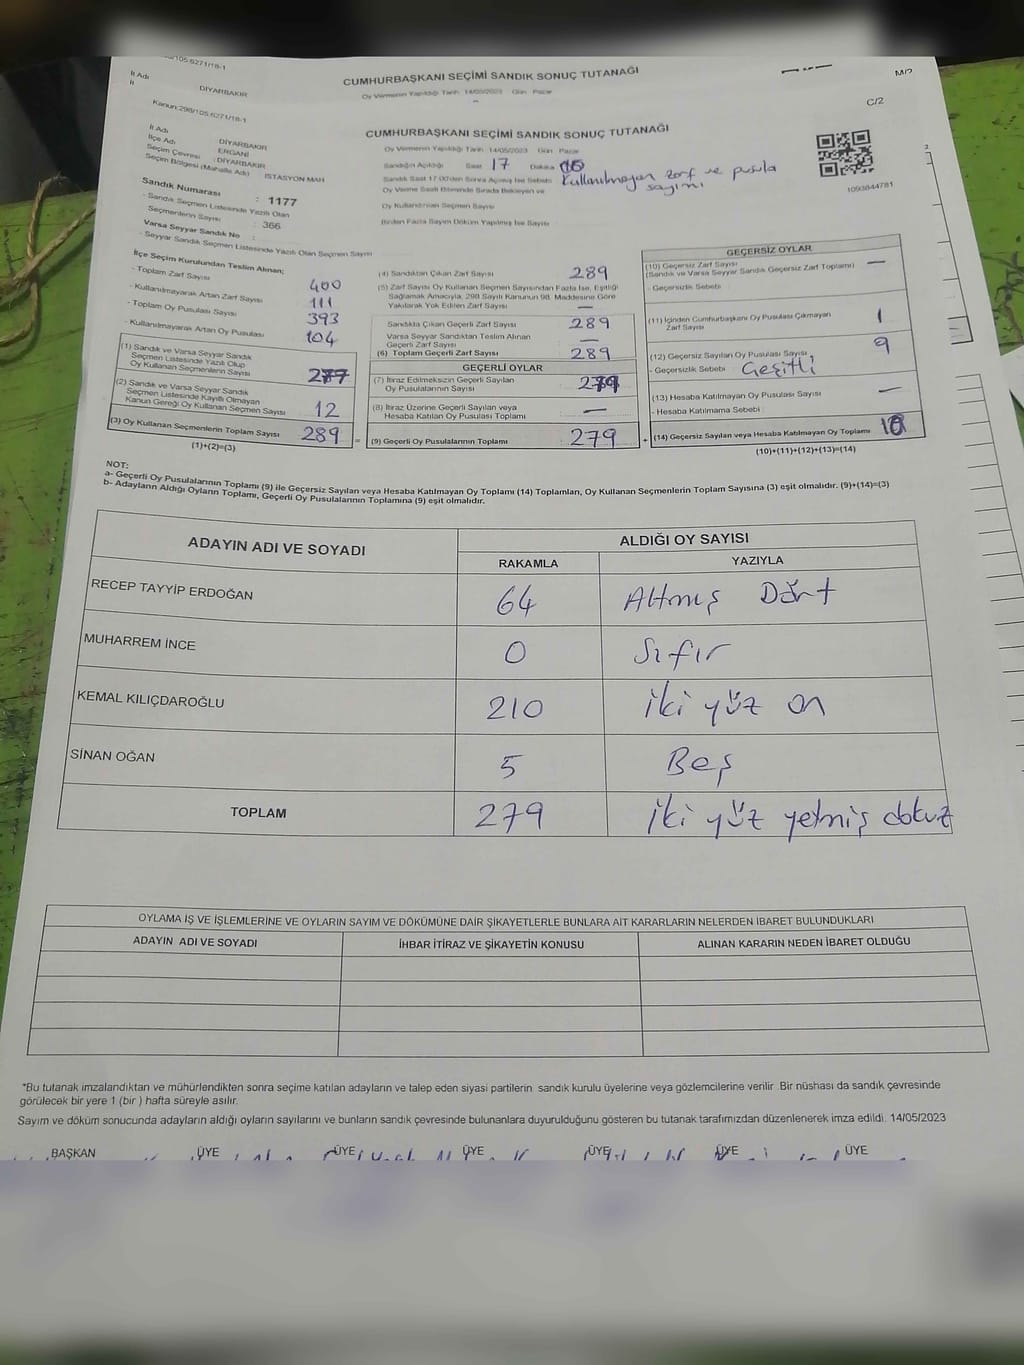 /105.6271/18-1
CUMHURBAŞKANI SEÇİMİ SANDIK SONUÇ TUTANAĞI
İl Adı
DİYARBAKIR
Oy Vermenin Yapıldığı Tarih 14/05/2023 Gün Pazar
Kanun:298/105.6271/18-1
C/2
CUMHURBAŞKANI SEÇİMİ SANDIK SONUÇ TUTANAĞI
İl Adı DİYARBAKIR
İlçe Adı ERGANİ
Seçim Çevresi : DİYARBAKIR
Seçim Bölgesi (Mahalle Adı) İSTASYON MAH
Oy Vermenin Yapıldığı Tarih 14/05/2023 Gün Pazar
Sandığın Açıldığı Saat 17 Dakika
Sandık Saat 17.00'den Sonra Açılmış İse Sebebi Kullanılmayan zarf ve pusula sayımı
Oy Verme Saati Bitiminde Sırada Bekleyen ve
Oy Kullandırılan Seçmen Sayısı
Birden Fazla Sayım Döküm Yapılmış İse Sayısı
1093844781
Sandık Numarası : 1177
- Sandık Seçmen Listesinde Yazılı Olan
Seçmenlerin Sayısı : 366
Varsa Seyyar Sandık No :
- Seyyar Sandık Seçmen Listesinde Yazılı Olan Seçmen Sayısı
İlçe Seçim Kurulundan Teslim Alınan;
- Toplam Zarf Sayısı 400
- Kullanılmayarak Artan Zarf Sayısı 111
- Toplam Oy Pusulası Sayısı 393
- Kullanılmayarak Artan Oy Pusulası 104
(1) Sandık ve Varsa Seyyar Sandık
Seçmen Listesinde Yazılı Olup
Oy Kullanan Seçmenlerin Sayısı 277
(2) Sandık ve Varsa Seyyar Sandık
Seçmen Listesinde Kayıtlı Olmayan
Kanun Gereği Oy Kullanan Seçmen Sayısı 12
(3) Oy Kullanan Seçmenlerin Toplam Sayısı 289
(1)+(2)=(3)
=
(4) Sandıktan Çıkan Zarf Sayısı 289
(5) Zarf Sayısı Oy Kullanan Seçmen Sayısından Fazla İse, Eşitliği
Sağlamak Amacıyla, 298 Sayılı Kanunun 98. Maddesine Göre
Yakılarak Yok Edilen Zarf Sayısı —
Sandıkta Çıkan Geçerli Zarf Sayısı 289
Varsa Seyyar Sandıktan Teslim Alınan
Geçerli Zarf Sayısı —
(6) Toplam Geçerli Zarf Sayısı 289
GEÇERLİ OYLAR
(7) İtiraz Edilmeksizin Geçerli Sayılan
Oy Pusulalarının Sayısı 279
(8) İtiraz Üzerine Geçerli Sayılan veya
Hesaba Katılan Oy Pusulası Toplamı —
(9) Geçerli Oy Pusulalarının Toplamı 279
+
GEÇERSİZ OYLAR
(10) Geçersiz Zarf Sayısı
(Sandık ve Varsa Seyyar Sandık Geçersiz Zarf Toplamı) —
- Geçersizlik Sebebi :
(11) İçinden Cumhurbaşkanı Oy Pusulası Çıkmayan
Zarf Sayısı 1
(12) Geçersiz Sayılan Oy Pusulası Sayısı 9
- Geçersizlik Sebebi : Çeşitli
(13) Hesaba Katılmayan Oy Pusulası Sayısı —
- Hesaba Katılmama Sebebi :
(14) Geçersiz Sayılan veya Hesaba Katılmayan Oy Toplamı 10
(10)+(11)+(12)+(13)=(14)
NOT:
a- Geçerli Oy Pusulalarının Toplamı (9) ile Geçersiz Sayılan veya Hesaba Katılmayan Oy Toplamı (14) Toplamları, Oy Kullanan Seçmenlerin Toplam Sayısına (3) eşit olmalıdır. (9)+(14)=(3)
b- Adayların Aldığı Oyların Toplamı, Geçerli Oy Pusulalarının Toplamına (9) eşit olmalıdır.
ADAYIN ADI VE SOYADI
ALDIĞI OY SAYISI
RAKAMLA YAZIYLA
RECEP TAYYİP ERDOĞAN 64 Altmış Dört
MUHARREM İNCE 0 Sıfır
KEMAL KILIÇDAROĞLU 210 iki yüz on
SİNAN OĞAN 5 Beş
TOPLAM 279 iki yüz yetmiş dokuz
OYLAMA İŞ VE İŞLEMLERİNE VE OYLARIN SAYIM VE DÖKÜMÜNE DAİR ŞİKAYETLERLE BUNLARA AİT KARARLARIN NELERDEN İBARET BULUNDUKLARI
ADAYIN ADI VE SOYADI İHBAR İTİRAZ VE ŞİKAYETİN KONUSU ALINAN KARARIN NEDEN İBARET OLDUĞU
*Bu tutanak imzalandıktan ve mühürlendikten sonra seçime katılan adayların ve talep eden siyasi partilerin sandık kurulu üyelerine veya gözlemcilerine verilir. Bir nüshası da sandık çevresinde
görülecek bir yere 1 (bir ) hafta süreyle asılır.
Sayım ve döküm sonucunda adayların aldığı oyların sayılarını ve bunların sandık çevresinde bulunanlara duyurulduğunu gösteren bu tutanak tarafımızdan düzenlenerek imza edildi. 14/05/2023
BAŞKAN ÜYE ÜYE ÜYE ÜYE ÜYE ÜYE